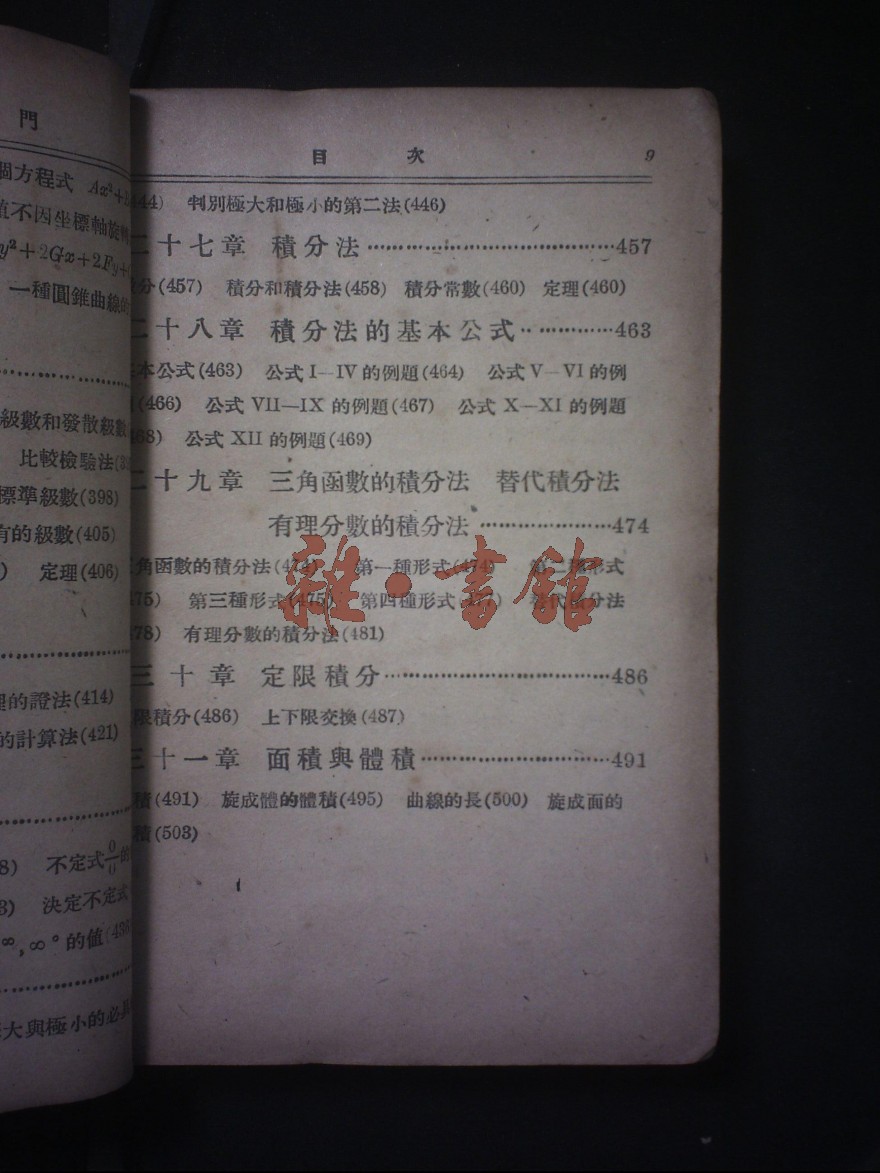 門
個方程式 Ax²+
值不因坐標軸旋轉
y²+2Gx+2Fy+
一種圓錐曲線的
級數和發散級數
比較檢驗法(3
標準級數(398)
有的級數(405)
) 定理(406)
理的證法(414)
的計算法(421)
8) 不定式0/0的
3) 決定不定式
∞,∞°的值(436
大與極小的必
目 次 9
44) 判別極大和極小的第二法(446)
二十七章 積分法……457
分(457) 積分和積分法(458) 積分常數(460) 定理(460)
二十八章 積分法的基本公式……463
本公式(463) 公式 I—IV 的例題(464) 公式 V—VI 的例
(466) 公式 VII—IX 的例題(467) 公式 X—XI 的例題
68) 公式 XII 的例題(469)
二十九章 三角函數的積分法 替代積分法
有理分數的積分法……474
角函數的積分法(474) 第一種形式(474) 第二種形式
475) 第三種形式(475) 第四種形式 替代積分法
478) 有理分數的積分法(481)
三十章 定限積分……486
限積分(486) 上下限交換(487)
三十一章 面積與體積……491
積(491) 旋成體的體積(495) 曲線的長(500) 旋成面的
積(503)
雜·書館